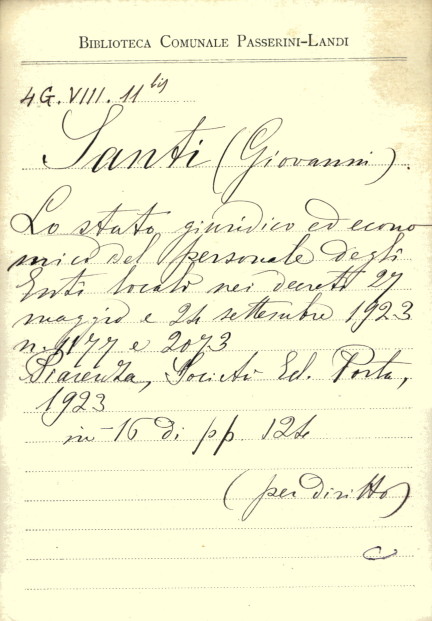 BIBLIOTECA COMUNALE PASSERINI-LANDI
4G. VIII. 11 bis
Santi (Giovanni).
Lo stato giuridico ed econo
mico del personale degli
Enti locali nei decreti 27
maggio e 24 settembre 1923
n. 1177 e 2073
Piacenza, Società Ed. Porta,
1923
in-16 di pp. 124
(per diritto)